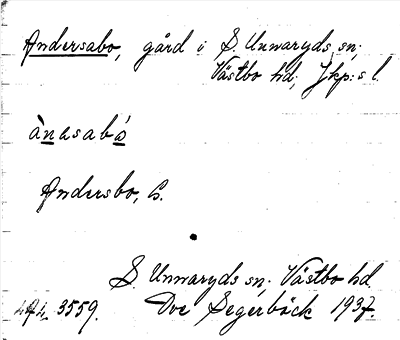 Andersabo, gård i S. Unnaryds sn;
Västbo hd; Jkp:s l.
ànasabó
Andersbo, G.
S. Unnaryds sn. Västbo hd
Acc. 3559. Dve Segerbäck 1937.